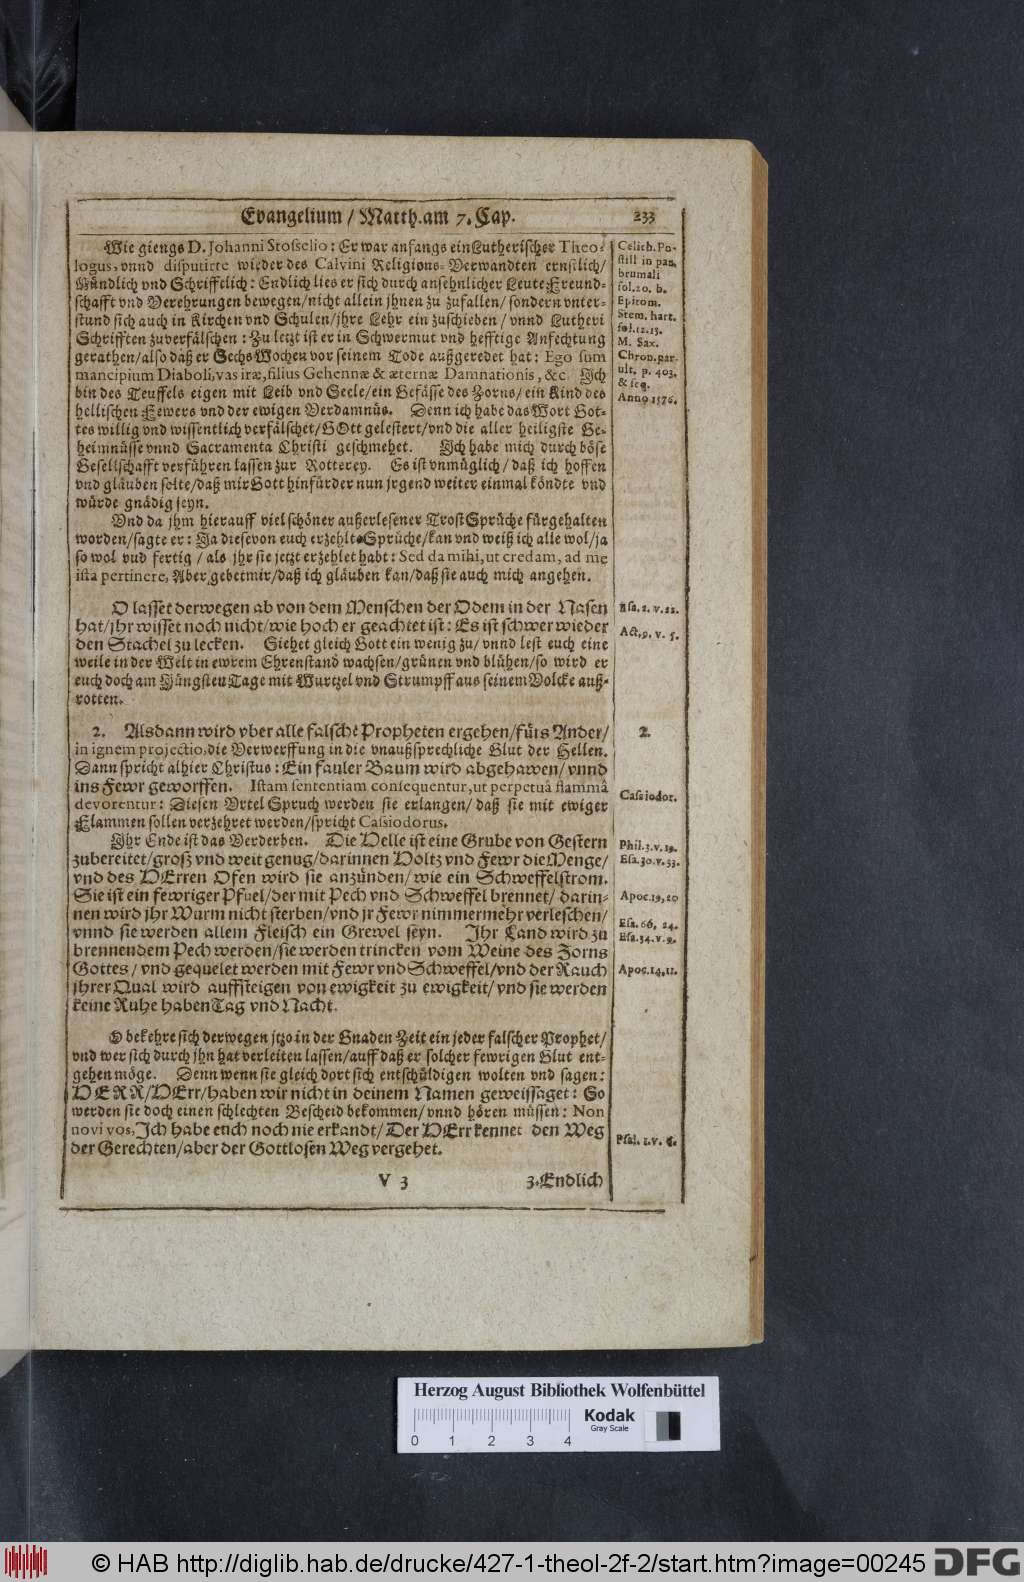 Evangelium / Matth. am 7. Cap. 233
Wie giengs D. Johanni Stosselio: Er war anfangs ein Lutherischer Theo-
logus, vnnd disputirte wieder des Calvini Religions-Verwandten ernstlich/
Mündlich vnd Schrifftlich: Endlich lies er sich durch ansehnlicher Leute Freund-
schafft vnd Verehrungen bewegen/nicht allein jhnen zu zufallen/ sondern vnter-
stund sich auch in Kirchen vnd Schulen/jhre Lehr ein zuschieben/ vnnd Lutheri
Schrifften zuverfälschen: Zu letzt ist er in Schwermut vnd hefftige Anfechtung
gerathen/also daß er Sechs Wochen vor seinem Tode außgeredet hat: Ego sum
mancipium Diaboli, vas iræ, filius Gehennæ & æternæ Damnationis, &c. Ich
bin des Teuffels eigen mit Leib vnd Seele/ein Gefässe des Zorns/ein Kind des
hellischen Fewers vnd der ewigen Verdamnüs. Denn ich habe das Wort Got-
tes willig vnd wissentlich verfälschet/GOtt gelestert/vnd die aller heiligste Ge-
heimnüsse vnnd Sacramenta Christi geschmehet. Ich habe mich durch böse
Gesellschafft verführen lassen zur Rotterey. Es ist vnmüglich/ daß ich hoffen
vnd gläuben solte/daß mir Gott hinfürder nun jrgend weiter einmal köndte vnd
würde gnädig seyn.
Vnd da jhm hierauff viel schöner außerlesener Trost Sprüche fürgehalten
worden/sagte er: Ja diese von euch erzehlte Sprüche/kan vnd weiß ich alle wol/ja
so wol vud fertig / als jhr sie jetzt erzehlet habt: Sed da mihi, ut credam, ad me
ista pertinere, Aber gebet mir/daß ich gläuben kan/daß sie auch mich angehen.
O lasset derwegen ab von dem Menschen der Odem in der Nasen
hat/jhr wisset noch nicht/wie hoch er geachtet ist: Es ist schwer wieder
den Stachel zu lecken. Siehet gleich Gott ein wenig zu/ vnnd lest euch eine
weile in der Welt in ewrem Ehrenstand wachsen/grünen vnd blühen/so wird er
euch doch am Jüngsten Tage mit Wurtzel vnd Strumpff aus seinem Volcke auß-
rotten.
2. Alsdann wird vber alle falsche Propheten ergehen/fürs Ander/
in ignem projectio, die Verwerffung in die vnaußsprechliche Glut der Hellen.
Dann spricht alhier Christus: Ein fauler Baum wird abgehawen/ vnnd
ins Fewr geworffen. Istam sententiam consequentur, ut perpetuâ flammâ
devorentur: Diesen Vrtel Spruch werden sie erlangen/ daß sie mit ewiger
Flammen sollen verzehret werden/spricht Cassiodorus.
Ihr Ende ist das Verderben. Die Helle ist eine Grube von Gestern
zubereitet/groß vnd weit genug/darinnen Holtz vnd Fewr die Menge/
vnd des HErren Ofen wird sie anzünden/ wie ein Schweffelstrom.
Sie ist ein fewriger Pfuel/der mit Pech vnd Schweffel brennet/ darin-
nen wird jhr Wurm nicht sterben/vnd jr Fewr nimmermehr verleschen/
vnnd sie werden allem Fleisch ein Grewel seyn. Ihr Land wird zu
brennendem Pech werden/sie werden trincken vom Weine des Zorns
Gottes/ vnd gequelet werden mit Fewr vnd Schweffel/vnd der Rauch
jhrer Qual wird auffsteigen von ewigkeit zu ewigkeit/ vnd sie werden
keine Ruhe haben Tag vnd Nacht.
O bekehre sich derwegen jtzo in der Gnaden Zeit ein jeder falscher Prophet/
vnd wer sich durch jhn hat verleiten lassen/auff daß er solcher fewrigen Glut ent-
gehen möge. Denn wenn sie gleich dort sich entschüldigen wolten vnd sagen:
HERR/HErr/haben wir nicht in deinem Namen geweissaget: So
werden sie doch einen schlechten Bescheid bekommen/ vnnd hören müssen: Non
novi vos, Ich habe euch noch nie erkandt/ Der HErr kennet den Weg
der Gerechten/aber der Gottlosen Weg vergehet.
V 3 3. Endlich
Celich. Po-
still in pan.
brumali
fol. 20. b.
Epitom.
Stem. hart.
fol. 12. 13.
M. Sax.
Chron. par
ult. p. 403.
& seq.
Anno 1576.
Esa. 2. v. 22.
Act. 9. v. 5.
2.
Cassiodor.
Phil. 3. v. 19.
Esa. 30. v. 33.
Apoc. 19, 20
Esa. 66, 24.
Esa. 34. v. 9.
Apoc. 14, 11.
Psal. 1. v. 6.
Herzog August Bibliothek Wolfenbüttel
0 1 2 3 4
Kodak
Gray Scale
© HAB http://diglib.hab.de/drucke/427-1-theol-2f-2/start.htm?image=00245
DFG